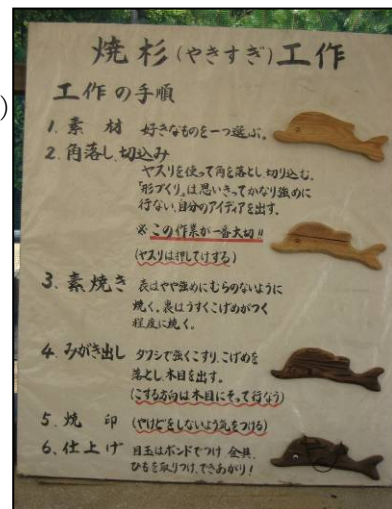 )
焼杉(やきすぎ)工作
工作の手順
1. 素材 好きなものを一つ選ぶ。
2. 角落し、切込み
ヤスリを使って角を落とし、切り込む。
「形づくり」は思いきってかなり強めに
行ない、自分のアイディアを出す。
※この作業が一番大切!!
(ヤスリは押してけずる)
3. 素焼き 表はやや強めにむらのないように
焼く。裏はうすくこげめがつく
程度に焼く。
4. みがき出し タワシで強くこすり、こげめを
落とし、木目を出す。
(こする方向は木目にそって行なう)
5. 焼印 (やけどをしないよう気をつける)
6. 仕上げ 目玉はボンドでつけ 金具、
ひもを取りつけ、できあがり!